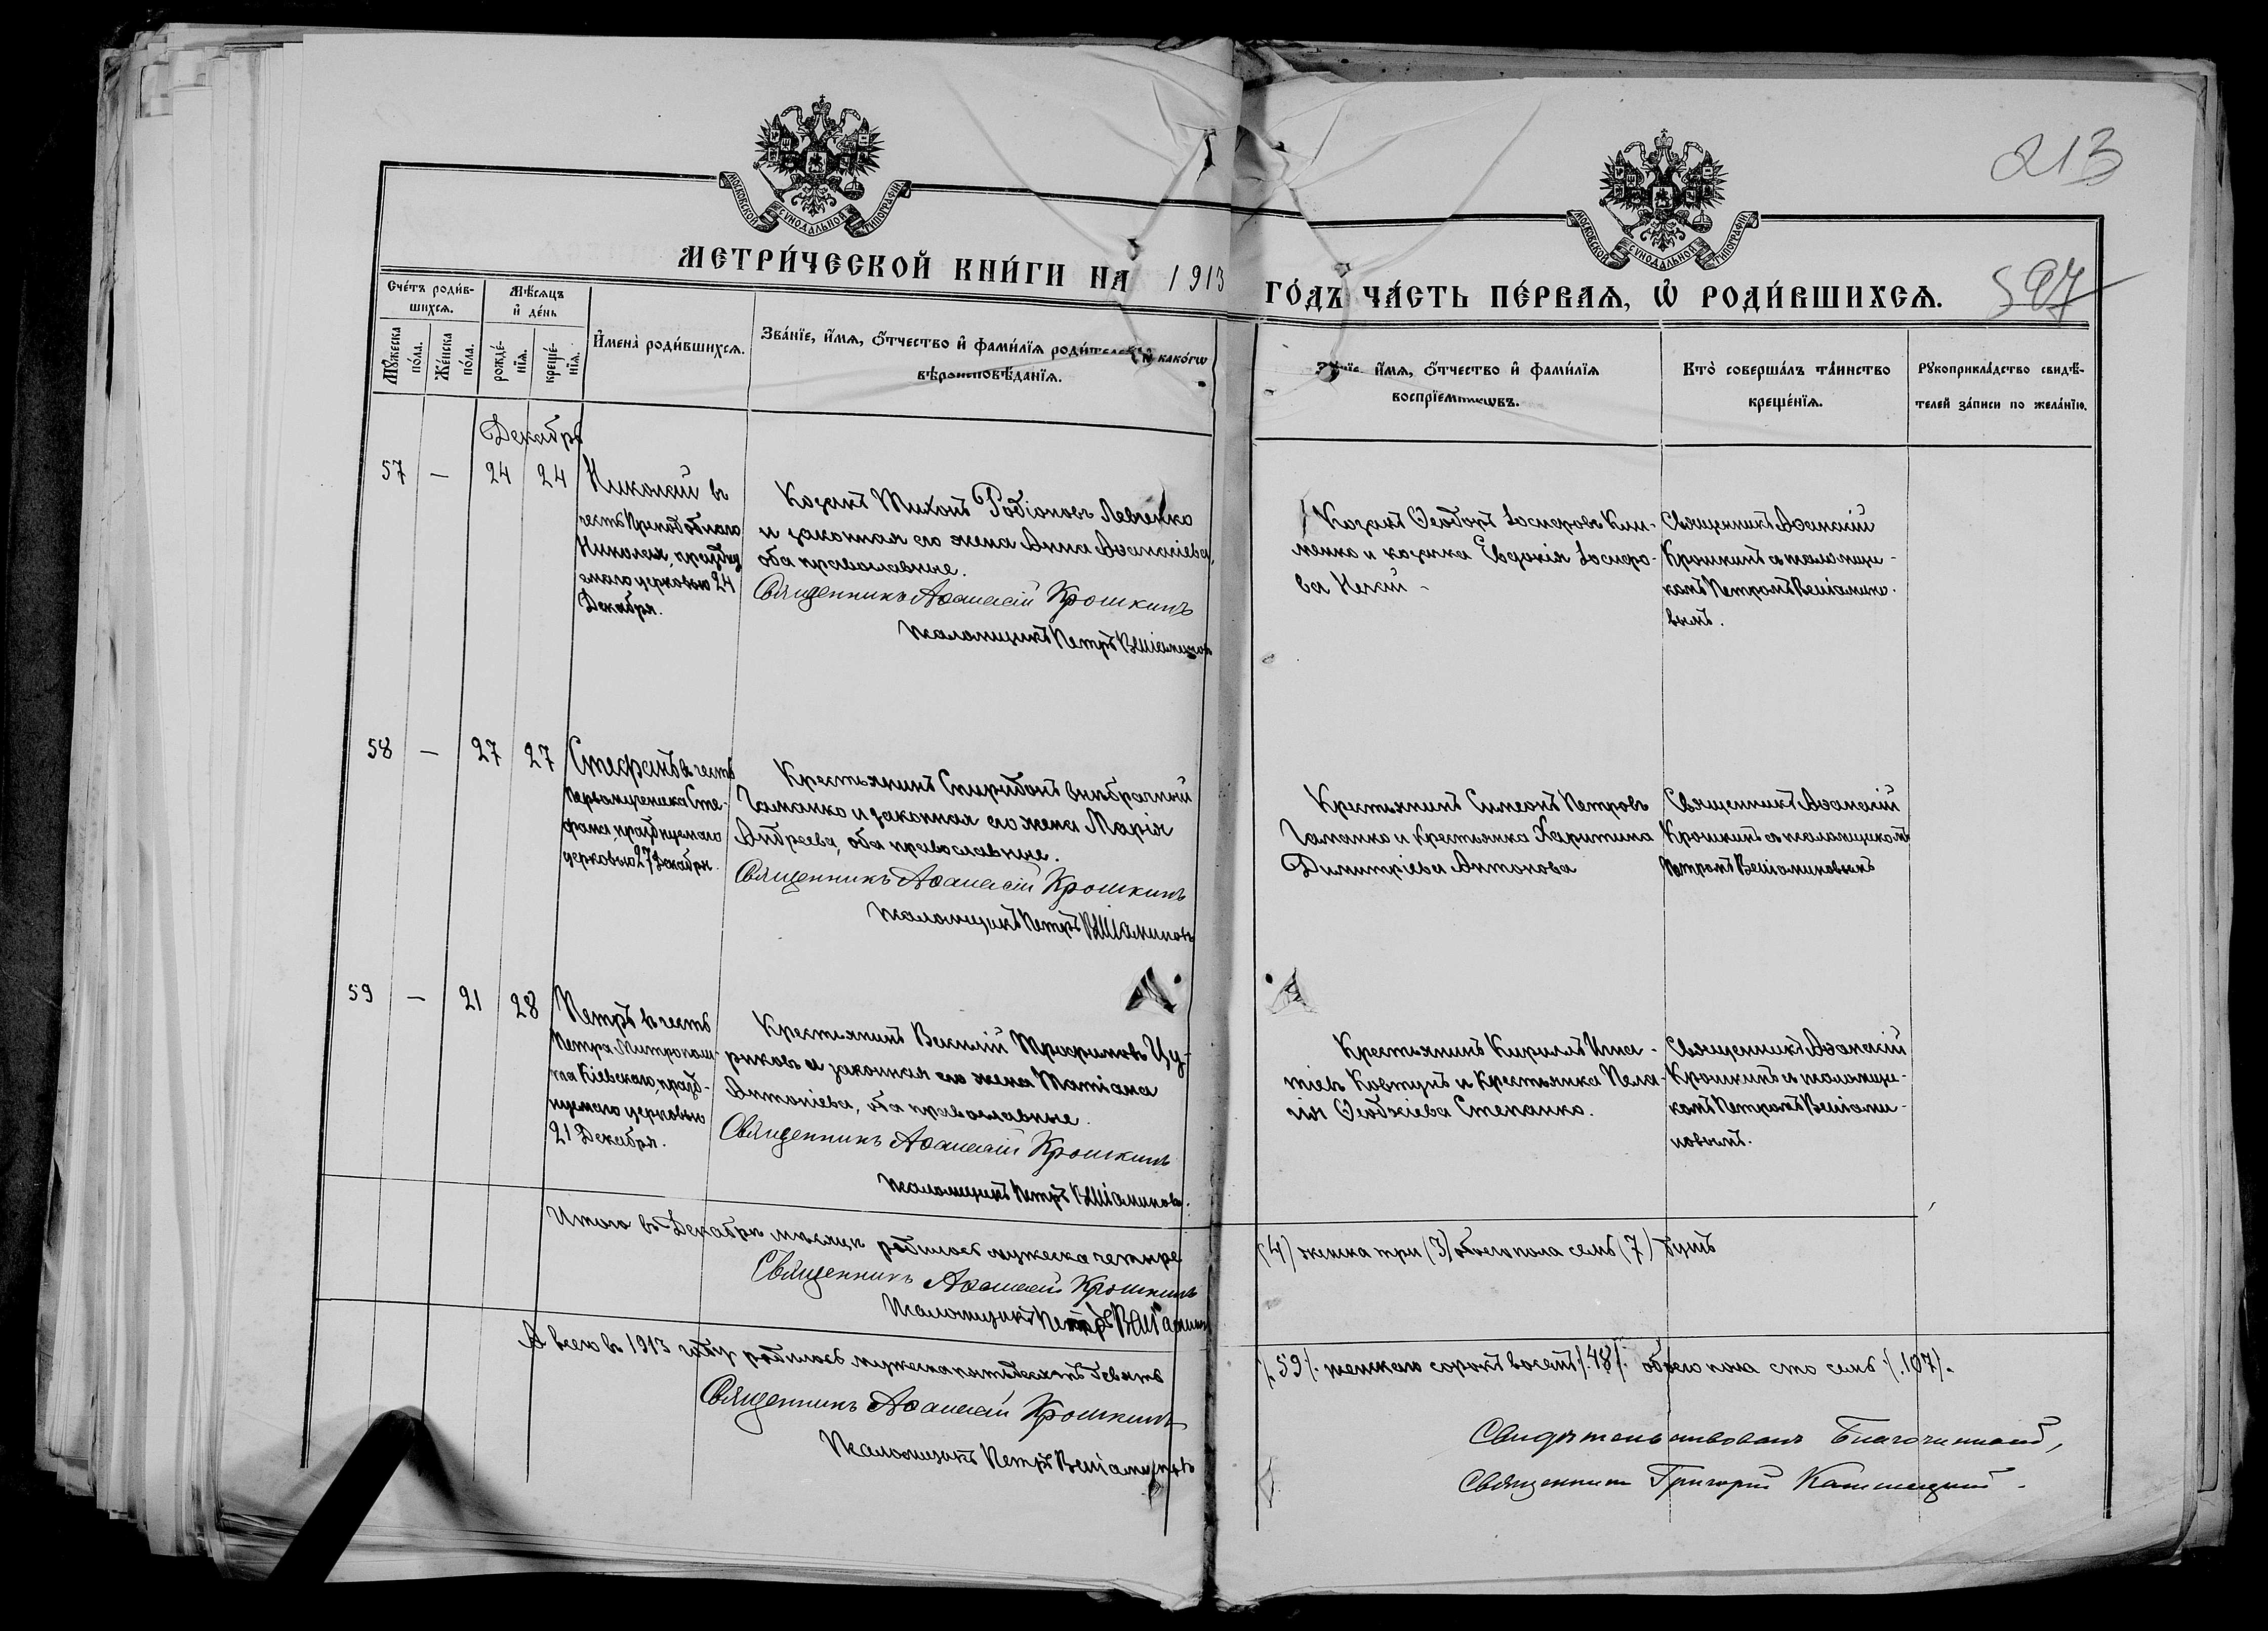 213
МОСКОВСКОЙ СУНОДАЛЬНОЙ ТИПОГРАФІИ
МОСКОВСКОЙ СУНОДАЛЬНОЙ ТИПОГРАФІИ
МЕТРИ́ЧЕСКОЙ КНИ́ГИ НА 1913 ГО́ДЪ ЧА́СТЬ ПЕ́РВАЯ, Ѽ РОДИ́ВШИХСЯ.
597
Сче́тъ роди́в-
шихся.
Мꙋжеска
по́ла.
Же́нска
по́ла.
Мѣ́сяцъ
и де́нь
рожде́-
нїя.
креще́-
нїя.
Имена̀ роди́вшихся.
Зва́нїе, и́мя, о́тчество и фами́лїя роди́телей, и како́гѡ
вѣроисповѣ́данїя.
Зва́нїе, и́мя, о́тчество и фами́лїя
воспрїемникѡвъ.
Кто̀ соверша́лъ та́инство
креще́нїя.
Рꙋкоприкла́дство свидѣ́-
телей за́писи по жела́нїю.
Декабрь
57 — 24 24
Николай въ
честь Преподобнаго
Николая, празdну
емаго церковью 24
Декабря.
Козакъ Тихонъ Родіоновъ Левченко
и законная его жена Анна Аѳанасіева,
оба православные.
Священникъ Аѳанасій Крошкинъ
Псаломщикъ Петръ Веніаминовъ
Козакъ Ѳеодоръ Іосифовъ Кли-
менко и козачка Евдокія Іосифо-
ва Негай -
Священникъ Аѳанасій
Крошкинъ съ псаломщи-
комъ Петромъ Веніамино-
вымъ.
58 — 27 27
Стефанъ въ честь
Первомученика Сте-
фана, празднуемаго
церковью 27 Декабря.
Крестьянинъ Спиридонъ внѣбрачный
Гаманко и законная его жена Марія
Андреева, оба православные.
Священникъ Аѳанасій Крошкинъ
Псаломщикъ Петръ Веніаминовъ
Крестьянинъ Симеонъ Петровъ
Гаманка и крестьянка Харитина
Димитріева Антонова
Священникъ Аѳанасій
Крошкинъ съ псаломщикомъ
Петромъ Веніаминовымъ
59 — 21 28
Петръ въ честь
Петра Митрополи-
та Кіевскаго, празд-
нуемаго церковью
21 Декабря.
Крестьянинъ Василій Трофимовъ Цу-
риковъ и законная его жена Татіана
Антоніева, оба православные.
Священникъ Аѳанасій Крошкинъ
Псаломщикъ Петръ Веніаминовъ.
Крестьянинъ Кириллъ Игна-
тіевъ Ковтунъ и крестьянка Пела-
гія Ѳеодосіева Степанко.
Священникъ Аѳанасій
Крошкинъ съ псаломщи-
комъ Петромъ Веніами-
новымъ.
Итого въ Декабрѣ мѣсяцѣ родилось мужеска четыре (4) женска три (3) обоего пола семь (7) душъ
Священникъ Аѳанасій Крошкинъ
Псаломщикъ Петръ Веніаминовъ
А всего въ 1913 году родилось мужеска пятьдесятъ девять /.59/. женскаго сорокъ восемь /.48/. обоего пола сто семь /.107/.
Священникъ Аѳанасій Крошкинъ
Псаломщикъ Петръ Веніаминовъ
Свидѣтельствовалъ Благочинный,
Священникъ Григорій